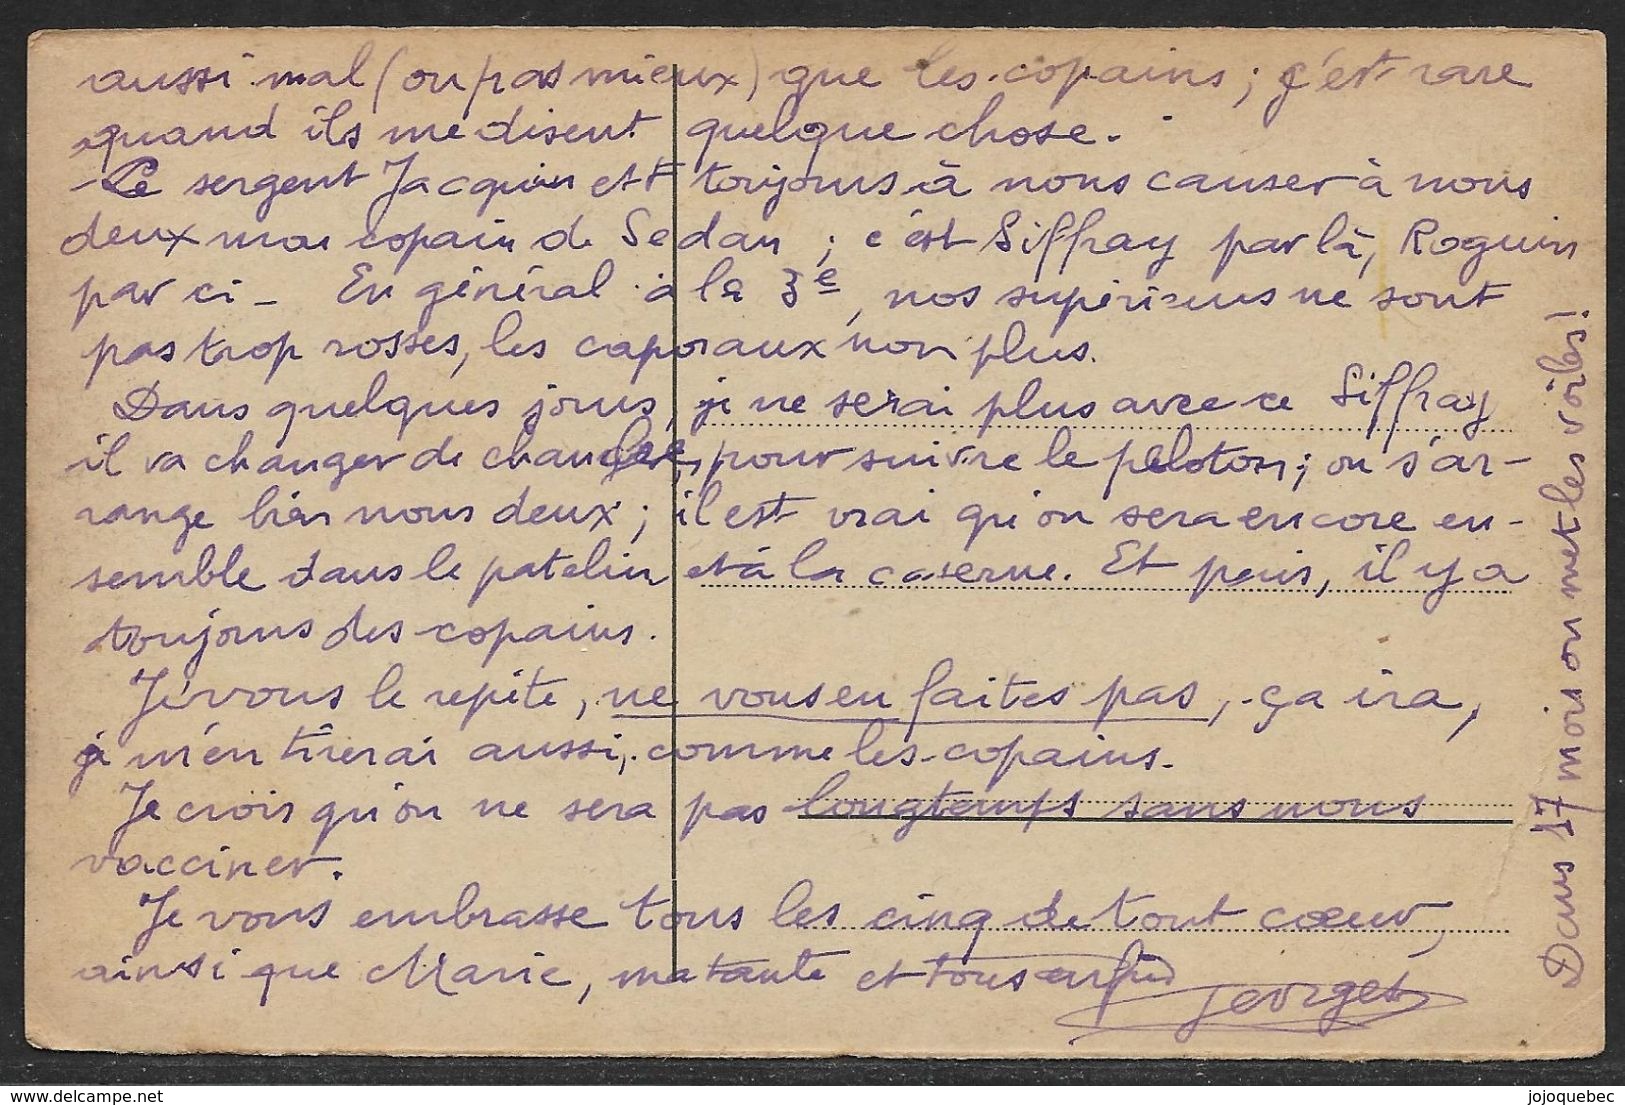 aussi mal (ou pas mieux) que les copains ; c'est rare
quand ils me disent quelque chose.
- Le sergent Jacquin est toujours à nous causer à nous
deux mon copain de Sedan ; c'est Siffray par là, Roguin
par ci - En général à la 3e, nos supérieurs ne sont
pas trop rosses, les caporaux non plus.
Dans quelques jours, je ne serai plus avec ce Siffray
il va changer de chambre, pour suivre le peloton ; on s'ar-
range bien nous deux ; il est vrai qu'on sera encore en-
semble dans le patelin et à la caserne. Et puis, il y a
toujours des copains.
Je vous le repète, ne vous en faites pas, ça ira,
je m'en tirerai aussi, comme les copains.
Je crois qu'on ne sera pas longtemps sans nous
vacciner.
Je vous embrasse tous les cinq de tout coeur,
ainsi que Marie, ma tante et tous enfin
Georges
Dans 17 mois on met les voiles !
delcampe.net
jojoquebec